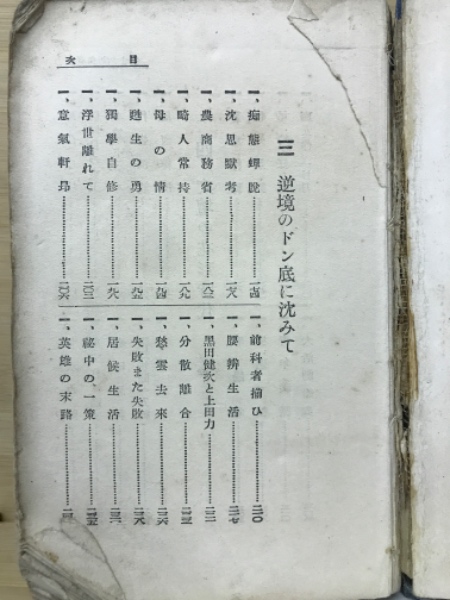 目次
三 逆境のドン底に沈みて
一、痴態蟬脫……一七四
一、沈思默考……一七八
一、農商務省……
一、畸人常持……一八九
一、母の情……一九四
一、甦生の勇……一九五
一、獨學自修……一九八
一、浮世離れて……二〇三
一、意氣軒昂……二〇六
一、前科者揃ひ……二一〇
一、腰辨生活……二一七
一、黑田健次と上田力……
一、分散離合……
一、愁雲去來……二二六
一、失敗また失敗……二二八
一、居候生活……
一、祕中の一策……二三五
一、英雄の末路……